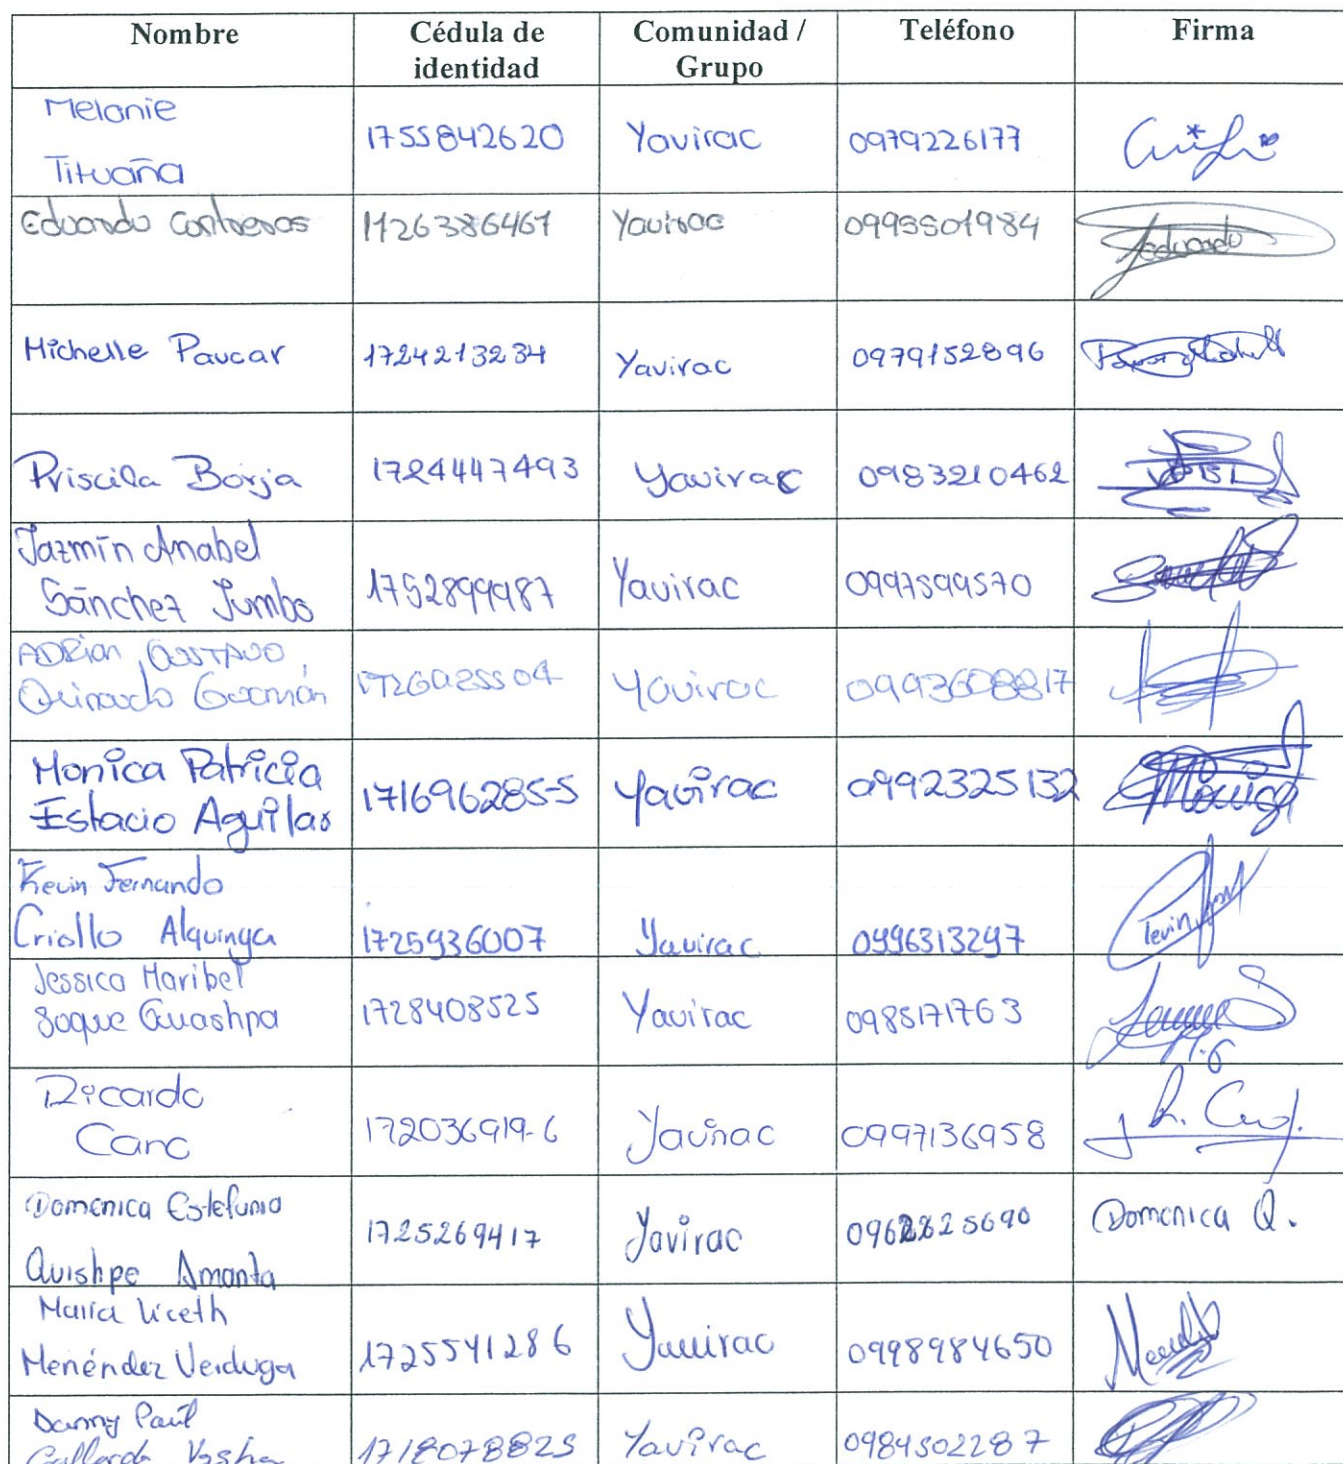 Nombre Cédula de identidad Comunidad / Grupo Teléfono Firma
Melanie
Tituaña 1755842620 Yavirac 0979226177
Eduardo Contreras 1726386461 Yavirac 0995501984 Eduardo
Michelle Paucar 1724213234 Yavirac 0979152896
Priscila Borja 1724447493 Yavirac 0983210462
Jazmín Anabel
Sánchez Jumbo 1752899987 Yavirac 0997599570
ADRIAN GUSTAVO
Guzmán Yavirac 0993608817
Monica Patricia
Estacio Aguilar 171696285-5 Yavirac 0992325132 Monica
Kevin Fernando
Criollo Alquinga 1725936007 Yavirac 0996313297 Kevin
Jessica Maribel
Soque Guashpa 1728408525 Yavirac 0985171763
Ricardo
Cano 172036919-6 Yavirac 0997136958
Domenica Estefania
Quishpe Amanta 1725269417 Yavirac 0962825690 Domenica Q.
Maria Liceth
Menéndez Verduga 1725541286 Yavirac 0998984650
Danny Paúl
Gallardo 1718078825 Yavirac 0984502287